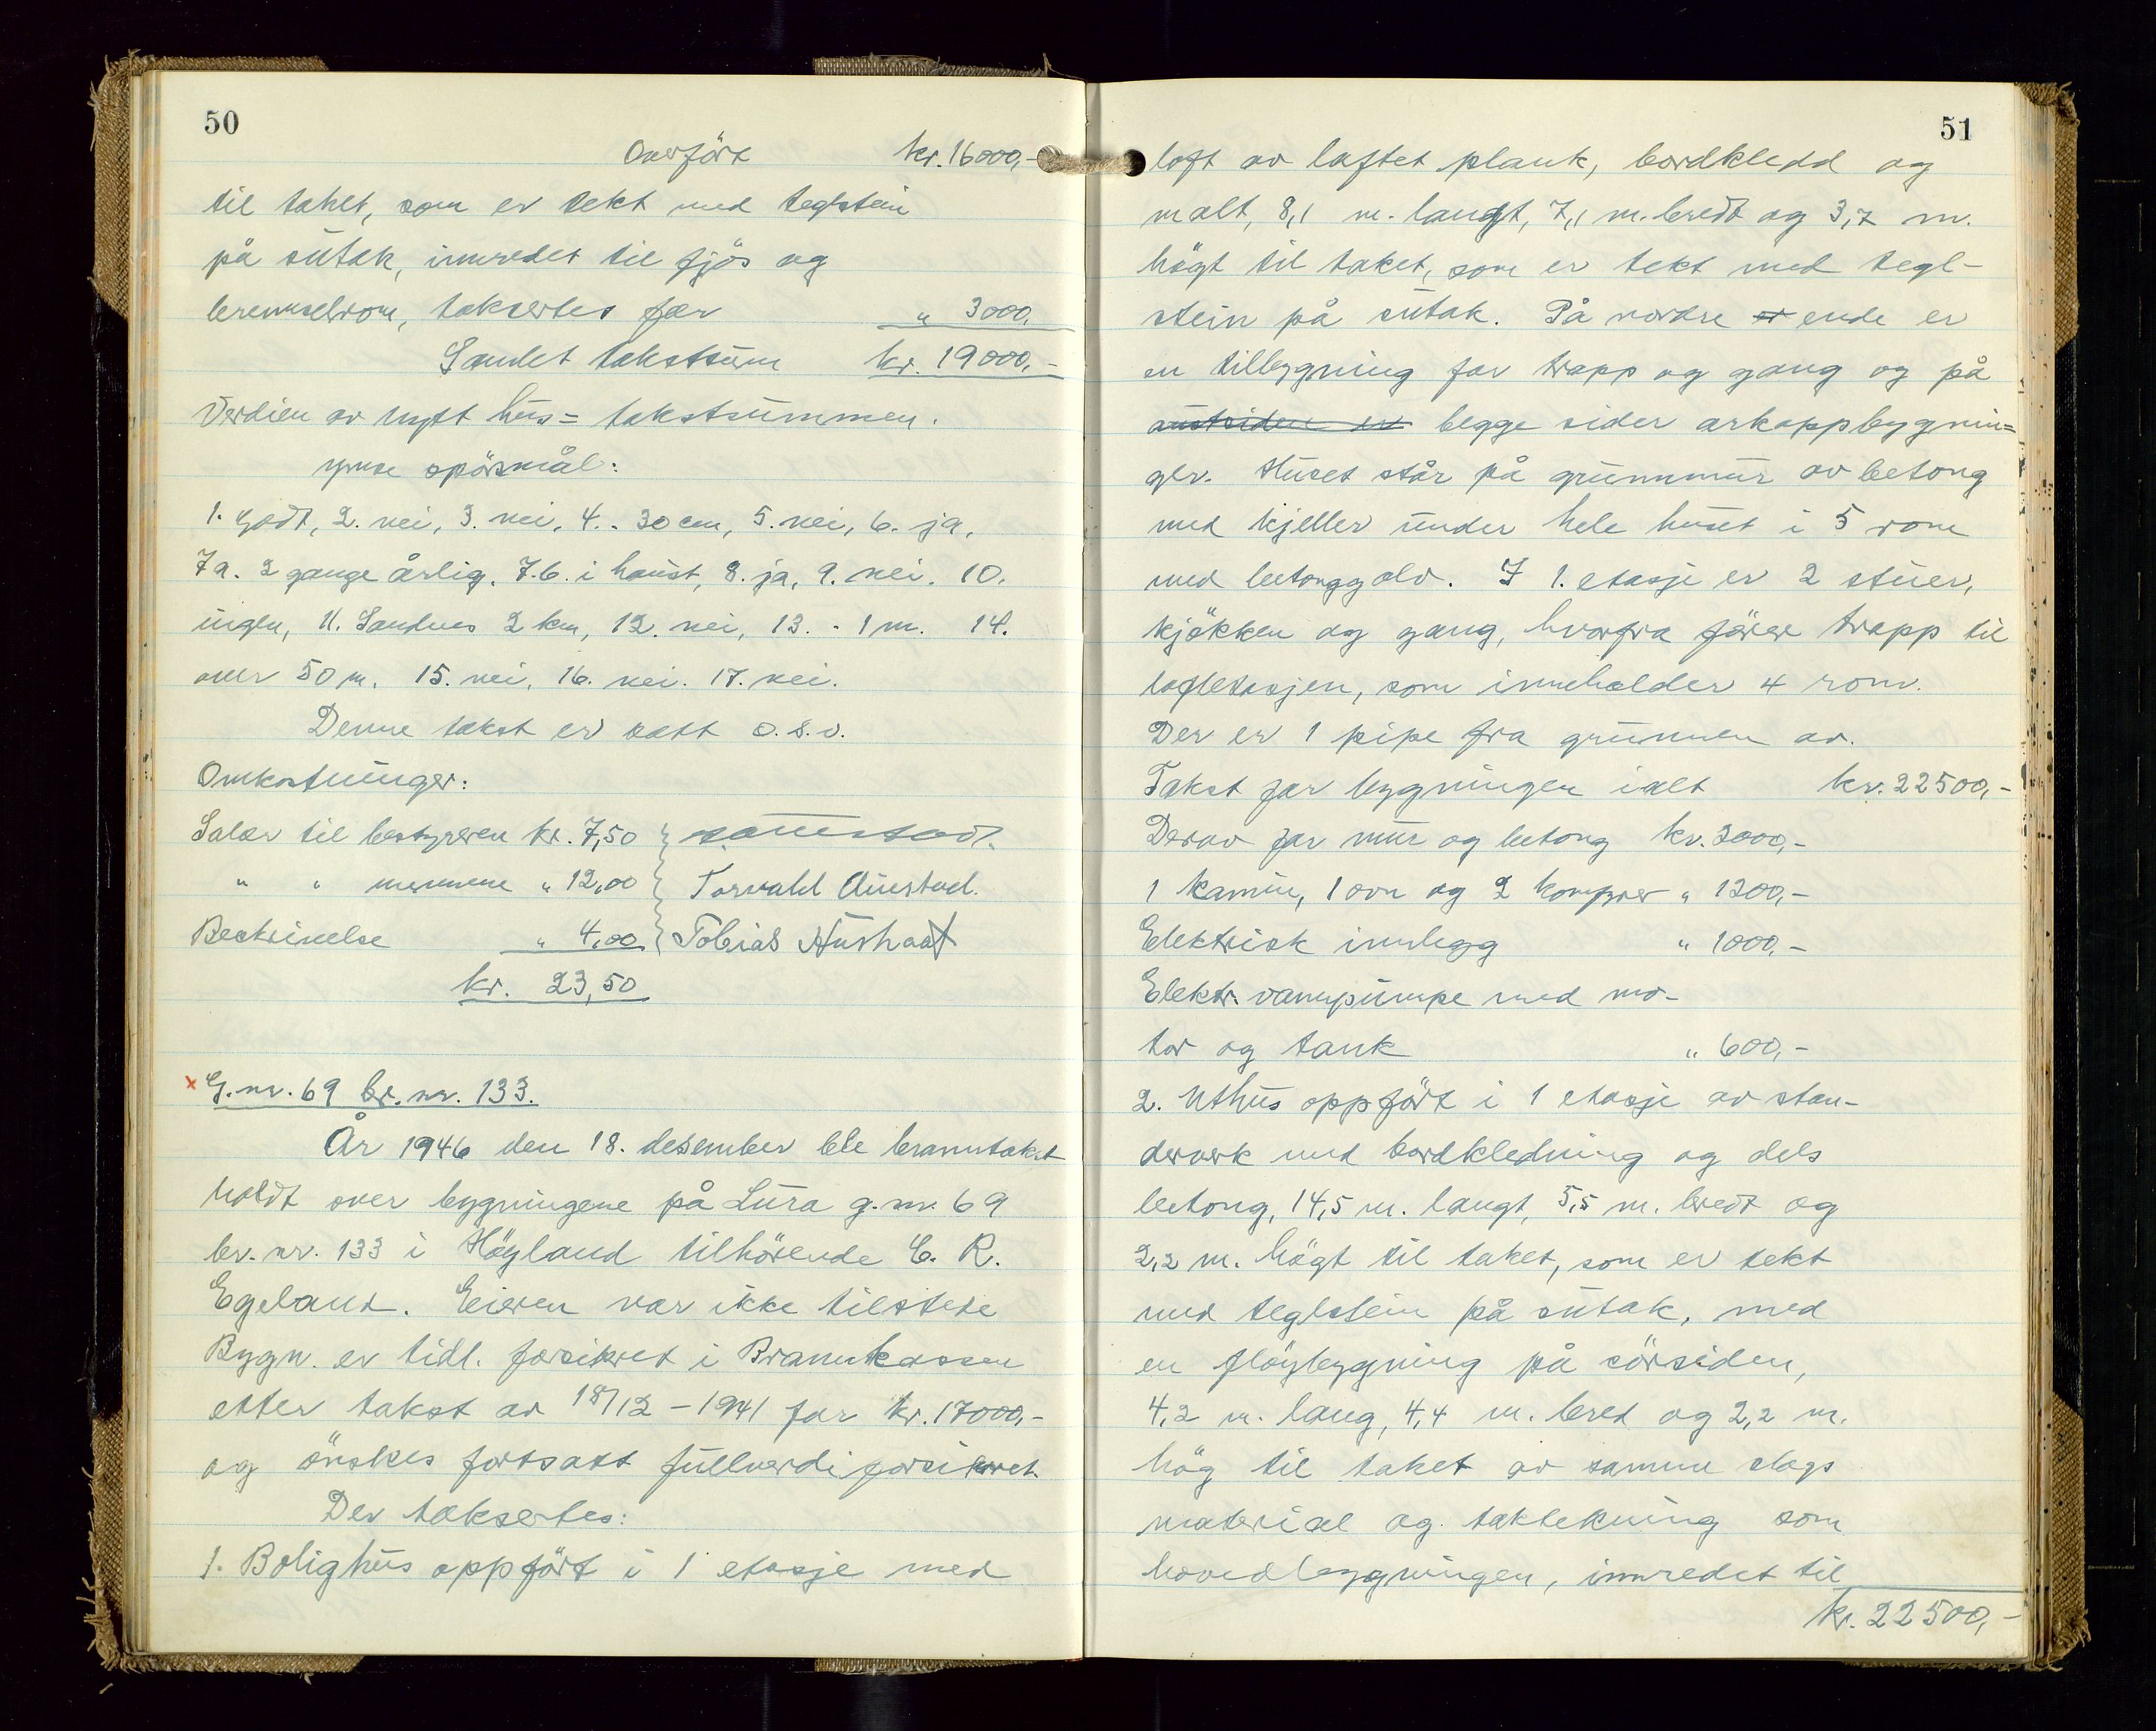 50
Overfört kr. 16000,-
til taket, som er tekt med teglstein
på sutak, innredet til fjös og
brenselrom, taksertes for " 3000,
Samlet takstsum kr. 19000,-
Verdien av nytt hus = takstsummen.
Ymse spörsmål:
1. godt, 2. nei, 3. nei, 4. - 30 cm, 5. nei, 6. ja,
7a. 2 gange årlig, 7.b. i haust, 8. ja, 9. nei. 10.
ingen, 11. Sandnes 2 km, 12. nei, 13. - 1 m. 14.
over 50 m. 15. nei, 16. nei. 17. nei.
Denne takst er satt o.s.v.
Omkostninger:
Salær til bestyreren kr. 7,50
" " mennene " 12,00 Torvald Auestad.
Beskrivelse " 4,00 Tobias Aushaat
kr. 23,50
x G.nr. 69 br.nr. 133.
År 1946 den 18. desember ble branntakst
holdt over bygningene på Lura g.nr. 69
br.nr. 133 i Höyland tilhörende C. R.
Egeland. Eieren var ikke tilstede
Bygn. er tidl. forsikret i Brannkassen
etter takst av 18/12-1941 for kr. 17000,-
og önskes fortsatt fullverdiforsikret.
Der taksertes:
1. Bolighus oppfört i 1 etasje med
51
loft av laftet plank, bordkledd og
malt, 8,1 m. langt, 7,1 m. bredt og 3,7 m.
högt til taket, som er tekt med tegl-
stein på sutak. På nordre ende er
en tilbygning for trapp og gang og på
austsiden er begge sider arkoppbygnin=
ger. Huset står på grunnmur av betong
med kjeller under hele huset i 5 rom
med betonggolv. I 1. etasje er 2 stuer,
kjökken og gang, hvorfra förer trapp til
loftetasjen, som inneholder 4 rom.
Der er 1 pipe fra grunnen av.
Takst for bygningen ialt kr. 22500,-
Derav for mur og betong kr. 3000,-
1 kamin, 1 ovn og 2 komfyrer " 1200,-
Elektrisk innlegg " 1000,-
Elektr. vannpumpe med mo-
tor og tank " 600,-
2. Uthus oppfört i 1 etasje av stan-
derverk med bordkledning og dels
betong, 14,5 m. langt, 5,5 m. bredt og
2,2 m. högt til taket, som er tekt
med teglstein på sutak, med
en flöybygning på sörsiden,
4,2 m. lang, 4,4 m. bred og 2,2 m.
hög til taket av samme slags
material og taktekning som
hovedbygningen, innredet til
kr. 22500,-